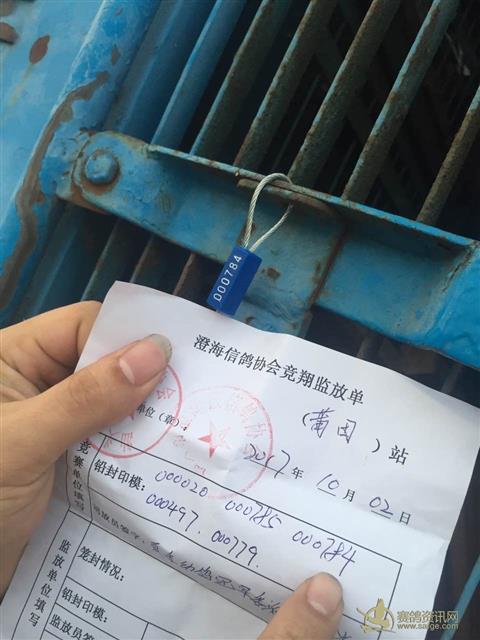 000784
澄海信鸽协会竞翔监放单
(莆田)站
单位(章):
2017年10月02日
竞赛单位填写
铅封印模: 000020 000785 000784
000497. 000779.
监放单位填写
笼封情况:
铅封印模:
监放员签
赛鸽资讯网
www.saige.com